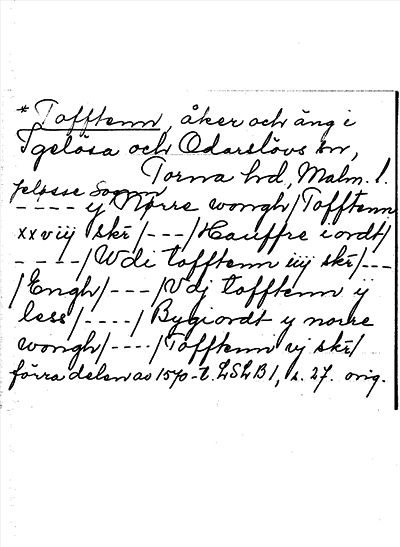 * Tofftenn, åker och äng i
Igelösa och Odarslövs sn,
Torna hd, Malm. l.
Jelösse Sogun
---- y Norre wongh/Tofftenn
xxviij skr/---/Hauffre iordt/
----/Wdi tofftenn iiij skr/---
/Engh/---/Vdj tofftenn ij
less/----/Bygiordt y norre
wongh/----/Tofftenn vj skr/
förra delen av 1570-t. LSLB 1, s. 27. orig.